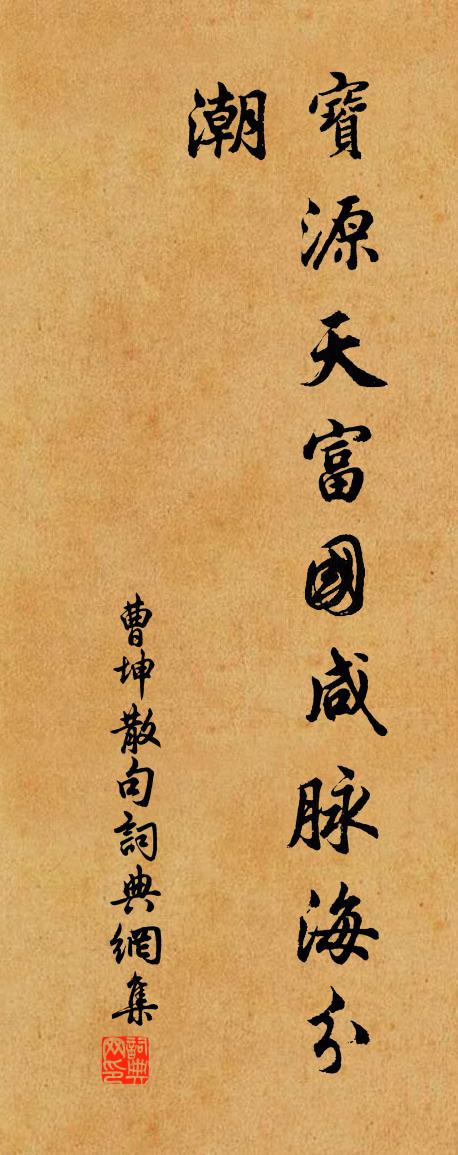 寶源天富國咸脉海分
潮
曹坤散句詞典網集
詞典網印